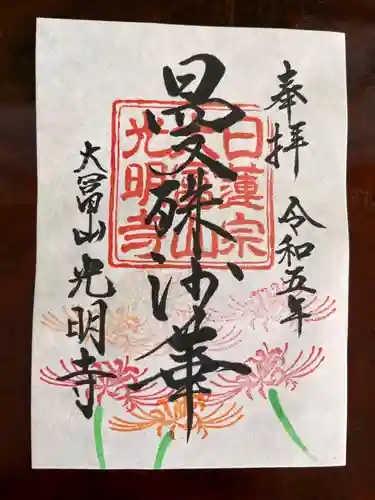 奉拝
令和五年
曼殊沙華
日蓮宗
大冨山
光明寺
大冨山
光明寺